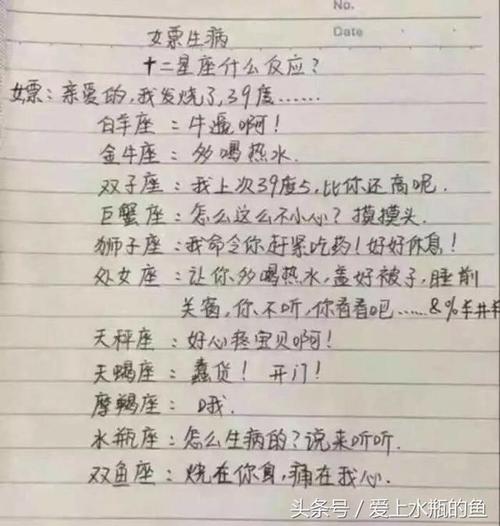 No.
Date
女票生病
十二星座什么反应?
女票:亲爱的,我发烧了,39度……
白羊座:牛逼啊!
金牛座:多喝热水.
双子座:我上次39度5,比你还高呢.
巨蟹座:怎么这么不小心?摸摸头.
狮子座:我命令你赶紧吃药!好好休息!
处女座:让你多喝热水,盖好被子,睡前
关窗,你不听,你看看吧……&%¥#¥
天秤座:好心疼宝贝啊!
天蝎座:蠢货!开门!
摩羯座:哦.
水瓶座:怎么生病的?说来听听.
双鱼座:烧在你身,痛在我心.
头条号/爱上水瓶的鱼